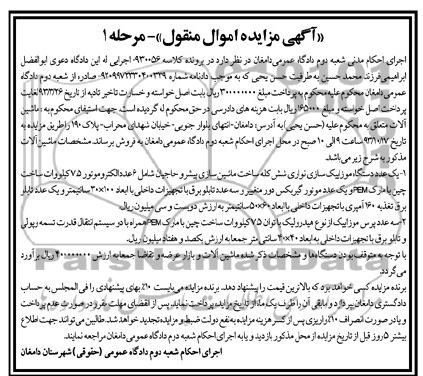 «آگهی مزایده اموال منقول» - مرحله ۱
اجرای احکام مدنی شعبه دوم دادگاه عمومی دامغان در نظر دارد در پرونده کلاسه ۹۳۰۰۵۶ اجرایی له این دادگاه دعوی ابوالفضل
ابراهیمی فرزند محمد حسین به طرفیت حسن یحیی که به موجب دادنامه شماره ۹۲۰۹۹۷۲۳۳۰۴۰۰۳۲۹ صادره از شعبه دوم دادگاه
عمومی دامغان محکوم علیه محکوم به پرداخت مبلغ ۳۰۰۰۰۰۰۰۰ ریال بابت اصل خواسته و خسارت تاخیر تادیه از تاریخ لغایت
پرداخت اصل خواسته و مبلغ ۱۶۵۰۰۰ ریال بابت هزینه های دادرسی در حق محکوم له گردیده است. جهت استیفای محکوم به: ماشین
آلات متعلق به محکوم علیه (حسن یحیی) به آدرس: دامغان- انتهای بلوار جنوبی- خیابان شهدای محراب- پلاک ۱۹۰ را طریق مزایده به
تاریخ ۹۳/۱۰/۱۷ ساعت ۹ الی ۱۰ صبح در محل اجرای احکام شعبه دوم دادگاه عمومی دامغان به فروش برساند. مشخصات ماشین آلات
مذکور به شرح زیر می باشد:
۱- یک عدد دستگاه موزاییک سازی نواری شش کله ساخت ماشین سازی پیشرو حاجیان شامل ۶ عدد الکتروموتور ۷.۵ کیلووات ساخت
چین با مارک PEM و یک عدد موتور گیربکس دور متغیر و سه عدد تابلو برق با تجهیزات داخلی با ابعاد ۱۰۰×۳۰ سانتیمتر و یک عدد تابلو
برق تغذیه ۱۶۰ آمپری با تجهیزات داخلی با ابعاد ۶۰×۵۰ سانتیمتر به ارزش دویست و سی میلیون ریال.
۲- سه عدد پرس موزاییک از نوع هیدرولیک با توان ۷.۵ کیلووات ساخت چین با مارک PEM همراه با دو سیستم انتقال قدرت تسمه و پولی
و تابلو برق با تجهیزات داخلی به ابعاد ۴۰×۴۰ سانتی متر جمعا به ارزش یکصد و هفتاد میلیون ریال.
با توجه به متوقف بودن دستگاه ها و مشخصات ذکر شده ماشین آلات و بازار عرضه و تقاضا جمعا به ارزش ۴۰۰۰۰۰۰۰۰ ریال برآورد
می گردد.
برنده مزایده کسی خواهد بود که بالاترین قیمت را پیشنهاد دهد. برنده مزایده می بایست ۱۰٪ بهای پیشنهادی را فی المجلس به حساب
دادگستری دامغان بپردازد و مابقی آن را ظرف یک ماه از تاریخ مزایده پرداخت نماید. پس از انقضای مهلت مقرر در صورت عدم پرداخت
و یا در صورت انصراف ۱۰٪ واریزی پس از کسر هزینه مزایده به نفع دولت ضبط و مزایده تجدید خواهد شد. طالبین می توانند جهت اطلاع
بیشتر ۵ روز قبل از تاریخ مزایده از محل مذکور بازدید و یا به اجرای احکام شعبه دوم دادگاه عمومی دامغان مراجعه نمایند.
اجرای احکام شعبه دوم دادگاه عمومی (حقوقی) شهرستان دامغان